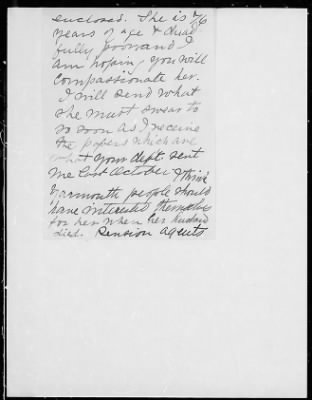 enclosed. She is 76
years of age & dread
fully poor and I
am hoping, you will
compassionate her.
I will send what
she must swear to
so soon as I receive
the papers which are
what your dept. sent
me last October I think
Yarmouth people should
have interested themselves
for her when her husband
died. Pension Agents